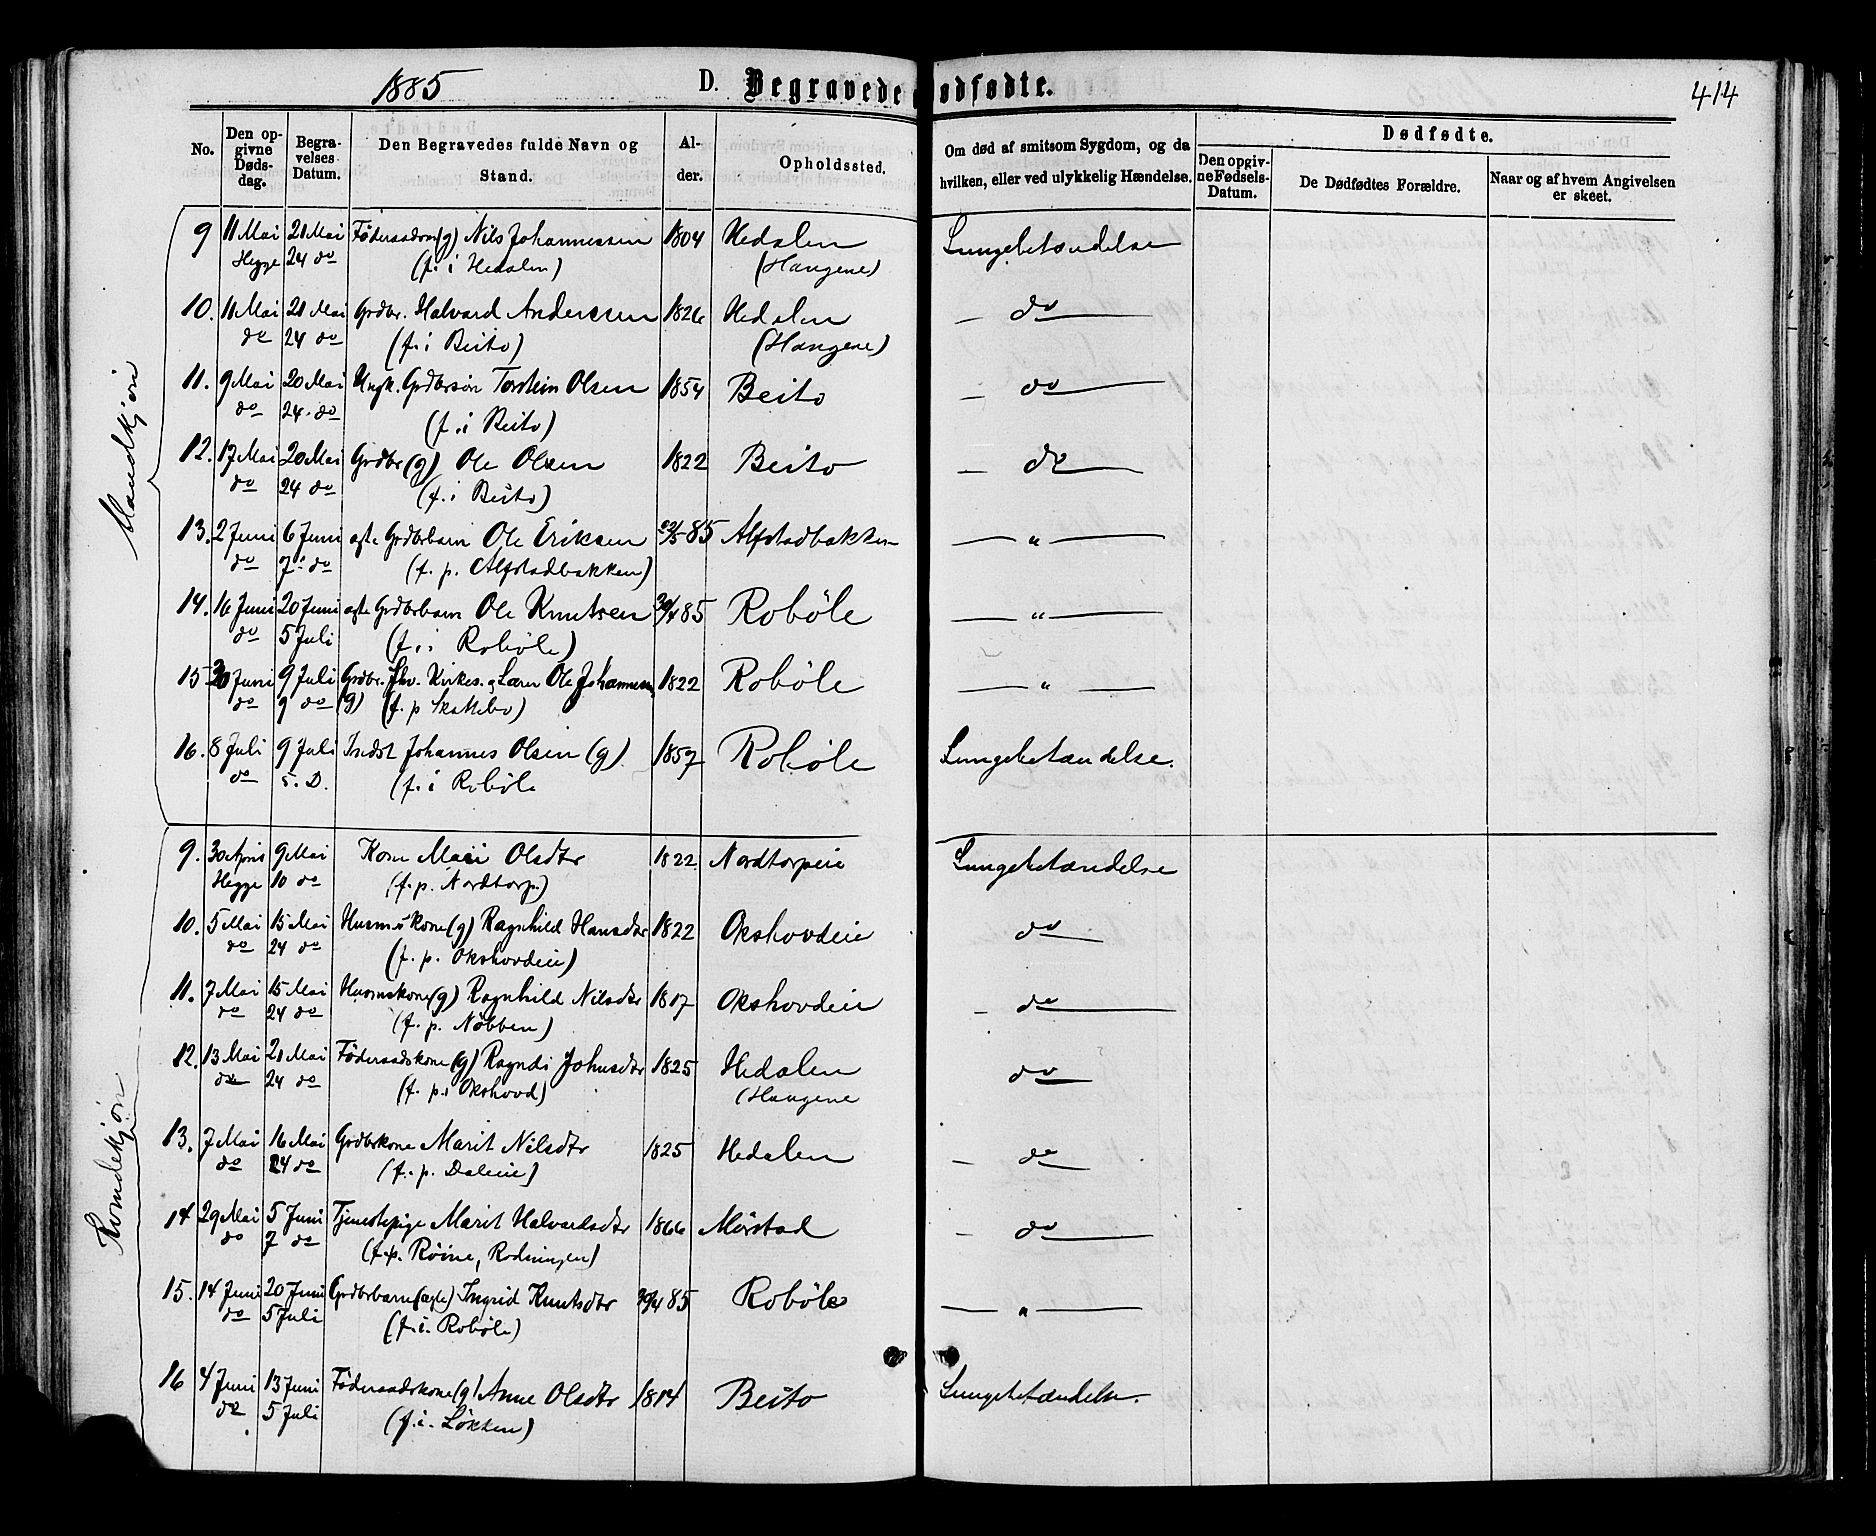 1885 D. Begravede og dødfødte. 414
No. Den opgivne Dødsdag. Begravelses Datum. Den Begravedes fulde Navn og Stand. Alder. Opholdssted. Om død af smitsom Sygdom, og da hvilken, eller ved ulykkelig Hændelse. Dødfødte.
Den opgivne Fødsels-Datum. De Dødfødtes Forældre. Naar og af hvem Angivelsen er skeet.
Mandkjøn
9 11 Mai 21 Mai Föderaadsm (g) Nils Johannessen 1804 Hedalen Lungebetændelse
Hegge 24 do (f. i Hedalen) (Haugene)
10. 11 Mai 21 Mai Grdbr. Halvard Andersen 1826 Hedalen — do
do 24 do (f. i Beito) (Haugene)
11. 9 Mai 20 Mai Ungk. Grdbrsön Torstein Olsen 1854 Beito — do
do 24. do (f. i Beito)
12. 17 Mai 20 Mai Grdbr (g) Ole Olsen 1822 Beito — do
do 24 do (f. i Beito)
13. 2 Juni 6 Juni ægte Grdbrbarn Ole Eriksen 85 Alfstadbakken — " —
do 7 do (f. p. Alfstadbakken)
14. 16 Juni 20 Juni ægte Grdbrbarn Ole Knutsen 30/4 85 Robøle — " —
do 5 Juli (f. i Robøle)
15 30 Juni 9 Juli Grdbr. Kirkes. og Lærer Ole Johannessen 1822 Robøle — " —
do 9 do (g) (f. p Skattebo)
16. 8 Juli 9 Juli Indst Johannes Olsen (g) 1857 Robøle Lungebetændelse.
do s. D. (f. i Robøle
Kvindekjøn
9. 30 April 9 Mai Kone Mari Olsdtr 1822 Nordtorpeie Lungebetændelse
Hegge 10 do (f. p. Nordtorp.)
10. 5 Mai 15 Mai Husmskone (g) Ragnhild Hansdtr 1822 Okshovdeie do
do 24 do (f. p. Okshovdeie)
11. 7 Mai 15 Mai Husmskone (g) Ragnhild Nilsdtr 1817 Okshovdeie — do
do 24 do (f. p. Nøbben)
12. 13 Mai 21 Mai Föderaadskone (g) Ragndi Johnsdtr 1825 Hedalen do
do 24 do (f. p. Okshovd) (Haugene
13. 7 Mai 16 Mai Grdbrkone Marit Nilsdtr 1825 Hedalen — do
do 24 do (f. p. Daleie)
14 29 Mai 5 Juni Tjenestepige Marit Halvardsdtr 1866 Mörstad — do
do 7 do (f. p. Röine, Rodningen)
15. 14 Juni 20 Juni Grdbrbarn (ægte) Ingrid Knutsdtr 30/4 85 Robøle — " —
do 5 Juli (f. i. Robøle)
16 4 Juni 13 Juni Föderaadskone (g) Anne Olsdtr 1814 Beito Lungebetændelse.
do 5 Juli (f. i. Løkken)